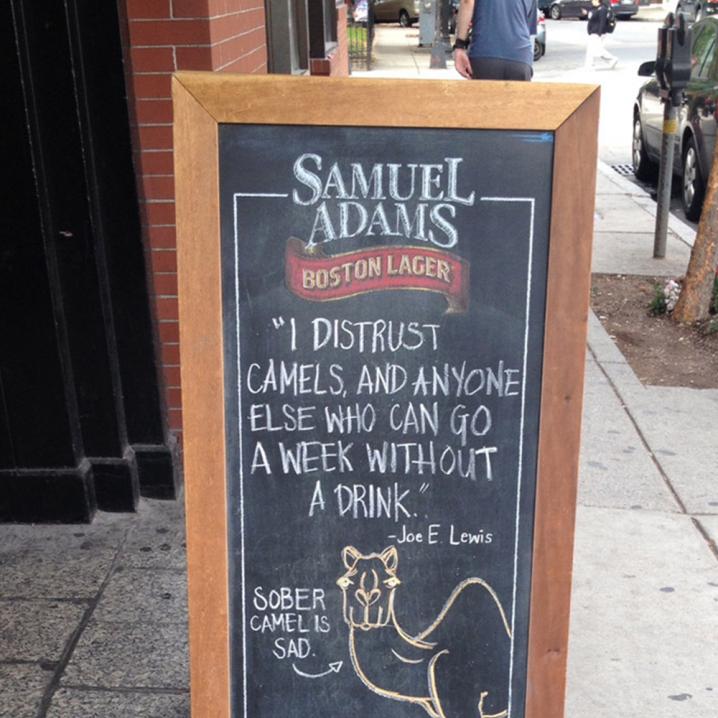 SAMUEL
ADAMS
BOSTON LAGER
"I DISTRUST
CAMELS, AND ANYONE
ELSE WHO CAN GO
A WEEK WITHOUT
A DRINK."
-Joe E. Lewis
SOBER
CAMEL IS
SAD.